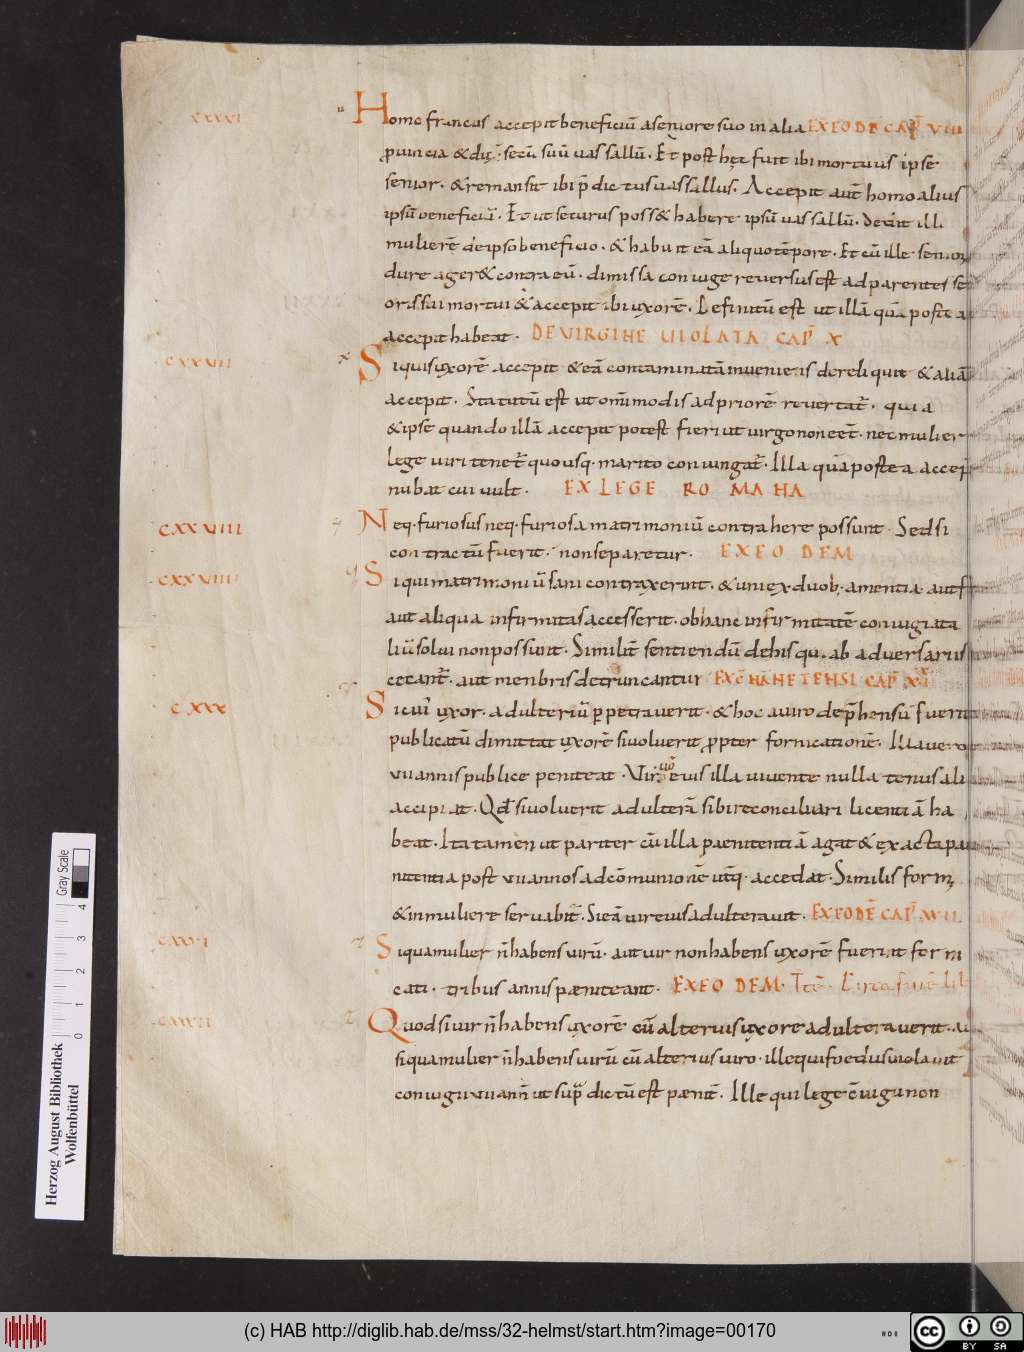 XXXVI
Homo francus accepit beneficiū a seniore suo in alia EX EODE CAP̄ VIIII
ꝓuincia & dux̄ secū suū uassallū. Et post hęc fuit ibi mortuus ipse
senior. & remansit ibi p̄dictus uassallus. Accepit aut̄ homo alius
ipsū beneficiū. Et ut securus poss& habere ipsū uassallū. dedit illi
mulierē de ipso beneficio. & habuit eā aliquo tēpore. Et cū ille senior
dure ager& contra eū. dimissa coniuge reuersus est ad parentes se
oris sui mortui & accepit ibi uxorē. Definitū est ut illā quā postea
accepit habeat. DE VIRGINE UIOLATA CAP̄ X
CXXVII
Si quis uxorē accepit & eā contaminatā inueniens dereliquit & aliā
accepit. Statutū est ut om̄imodis ad priorē reuertat̄. quia
& ipse quando illā accepit potest fieri ut uirgo non eēt. nec mulier
lege uiri tenet̄ quousq. marito coniungat̄. Illa quā postea accep
nubat cui uult. EX LEGE ROMANA
CXXVIII
Neq. furiosus neq. furiosa matrimoniū contrahere possunt. Sed si
contractū fuerit. non separetur. EX EODEM
CXXVIIII
Si qui matrimoniū sani contraxerint. & uni ex duob; amentia aut f
aut aliqua infirmitas accesserit. ob hanc infirmitatē coniugia ta
liū solui non possunt. Similit̄ sentiendū de his qui ab aduersariis
cecant̄. aut menbris detruncantur EX C̄ NANNETENSI CAP̄ XII
CXXX
Si cui uxor. adulteriū ꝑpetrauerit. & hoc a uiro dep̄hensū fuerit
publicatū dimittat uxorē si uoluerit ꝓpter fornicationē. Illa uero
VII annis publice peniteat. Vir uō eius illa uiuente nullatenus ali
accipiat. Qd̄ si uoluerit adulterā sibi reconciliari licentiā ha
beat. Ita tamen ut pariter cū illa paenitentiā agat & exacta pa
nitentia post VII annos ad cōmunionē utq. accedat. Similis forma
& in muliere seruabit̄. Si eā uir eius adulterauit. EX EODĒ CAP̄ XIIII.
CXXXI
Si qua mulier n̄ habens uirū. aut uir non habens uxorē fuerint forni
cati. tribus annis pæniteant. EX EODEM. Itē.
CXXXII
Quod si uir n̄ habens uxorē cū alterius uxore adulterauerit. au
si qua mulier n̄ habens uirū cū alterius uiro. ille qui foedus uiolauit
coniugii VII ann̄ ut sup̄ dictū est pænit̄. Ille qui lege c̄iugii non
Gray Scale
Herzog August Bibliothek
Wolfenbüttel
0 1 2 3 4
(c) HAB http://diglib.hab.de/mss/32-helmst/start.htm?image=00170
HAB
cc BY SA